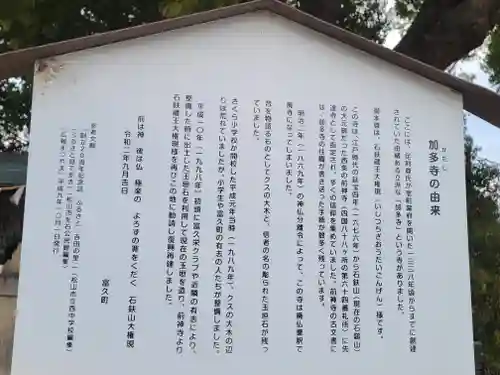 加多寺の由来
かたし
ここには、足利尊氏が室町幕府を開いた一三三八年頃からすでに創建
されていた由緒ある立派な「加多寺」という寺がありました。
御本尊は、石鈇蔵王大権現(いしづちざおうだいごんげん)様です。
この寺は、江戸時代の延宝四年(一六七六年)から石鈇山(現在の石鎚山)
の大元講だった西条の前神寺(四国八十八ヶ所の第六十四番札所)に先
達寺として指定され、多くの信仰を集めていました。前神寺の古文書に
は、加多寺の住職が書き送った手紙が数多く残っています。
明治二年(一八六九年)の神仏分離令によって、この寺は廃仏棄釈で
廃寺になってしまいました。
台を物語る石のとしてクスの大木と、信者の名の彫られた玉垣石が残っ
ていました。
さくら小学校が開校した平成元年当時(一九八九年)、クスの大木の辺
りは荒れていましたが、小学生や富久町の有志の人たちが整備しました。
平成一〇年(一九九八年)初頭に富久栄クラブや近隣の有志により、
整備した時に出土した玉垣石を利用して現在の玉垣を造り、前神寺より
石鈇蔵王大権現を再びこの地に勧請し復興再建しました。
前は神 後は仏 極楽の よろずの罪を くだく 石鈇山大権現
令和二年九月吉日
富久町
参考文献